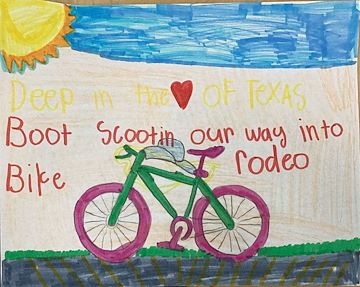 Deep in the ❤ OF TEXAS
Boot Scootin our way into
Bike rodeo